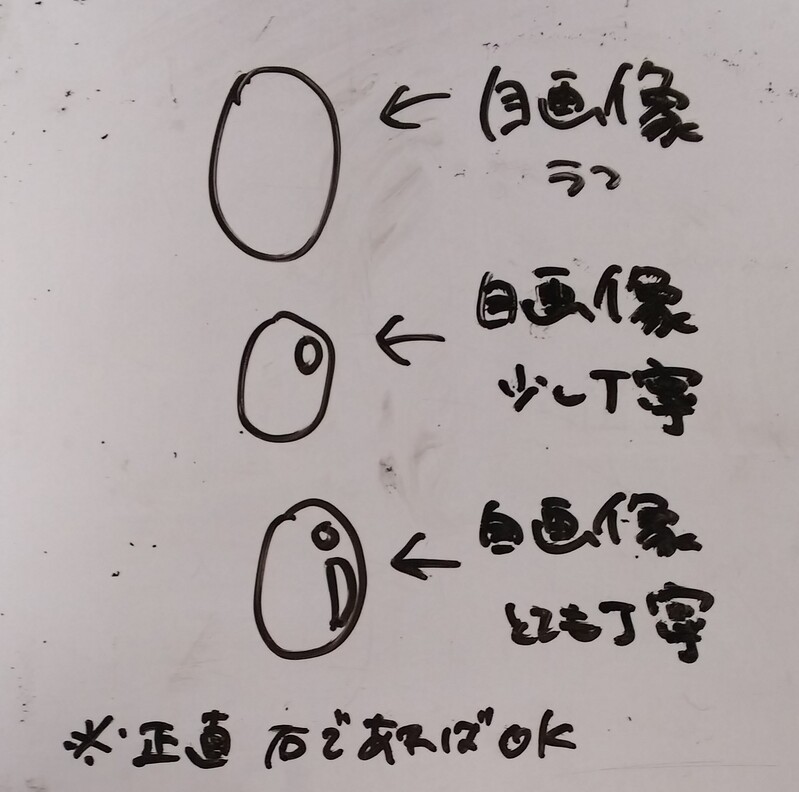 自画像
ラフ
自画像
少し丁寧
自画像
とても丁寧
※正直 石であればOK